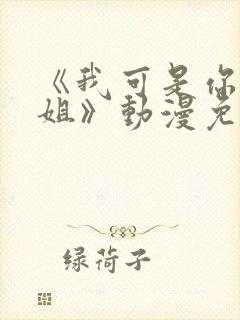 《我可是你
姐》動漫免
绿荷子